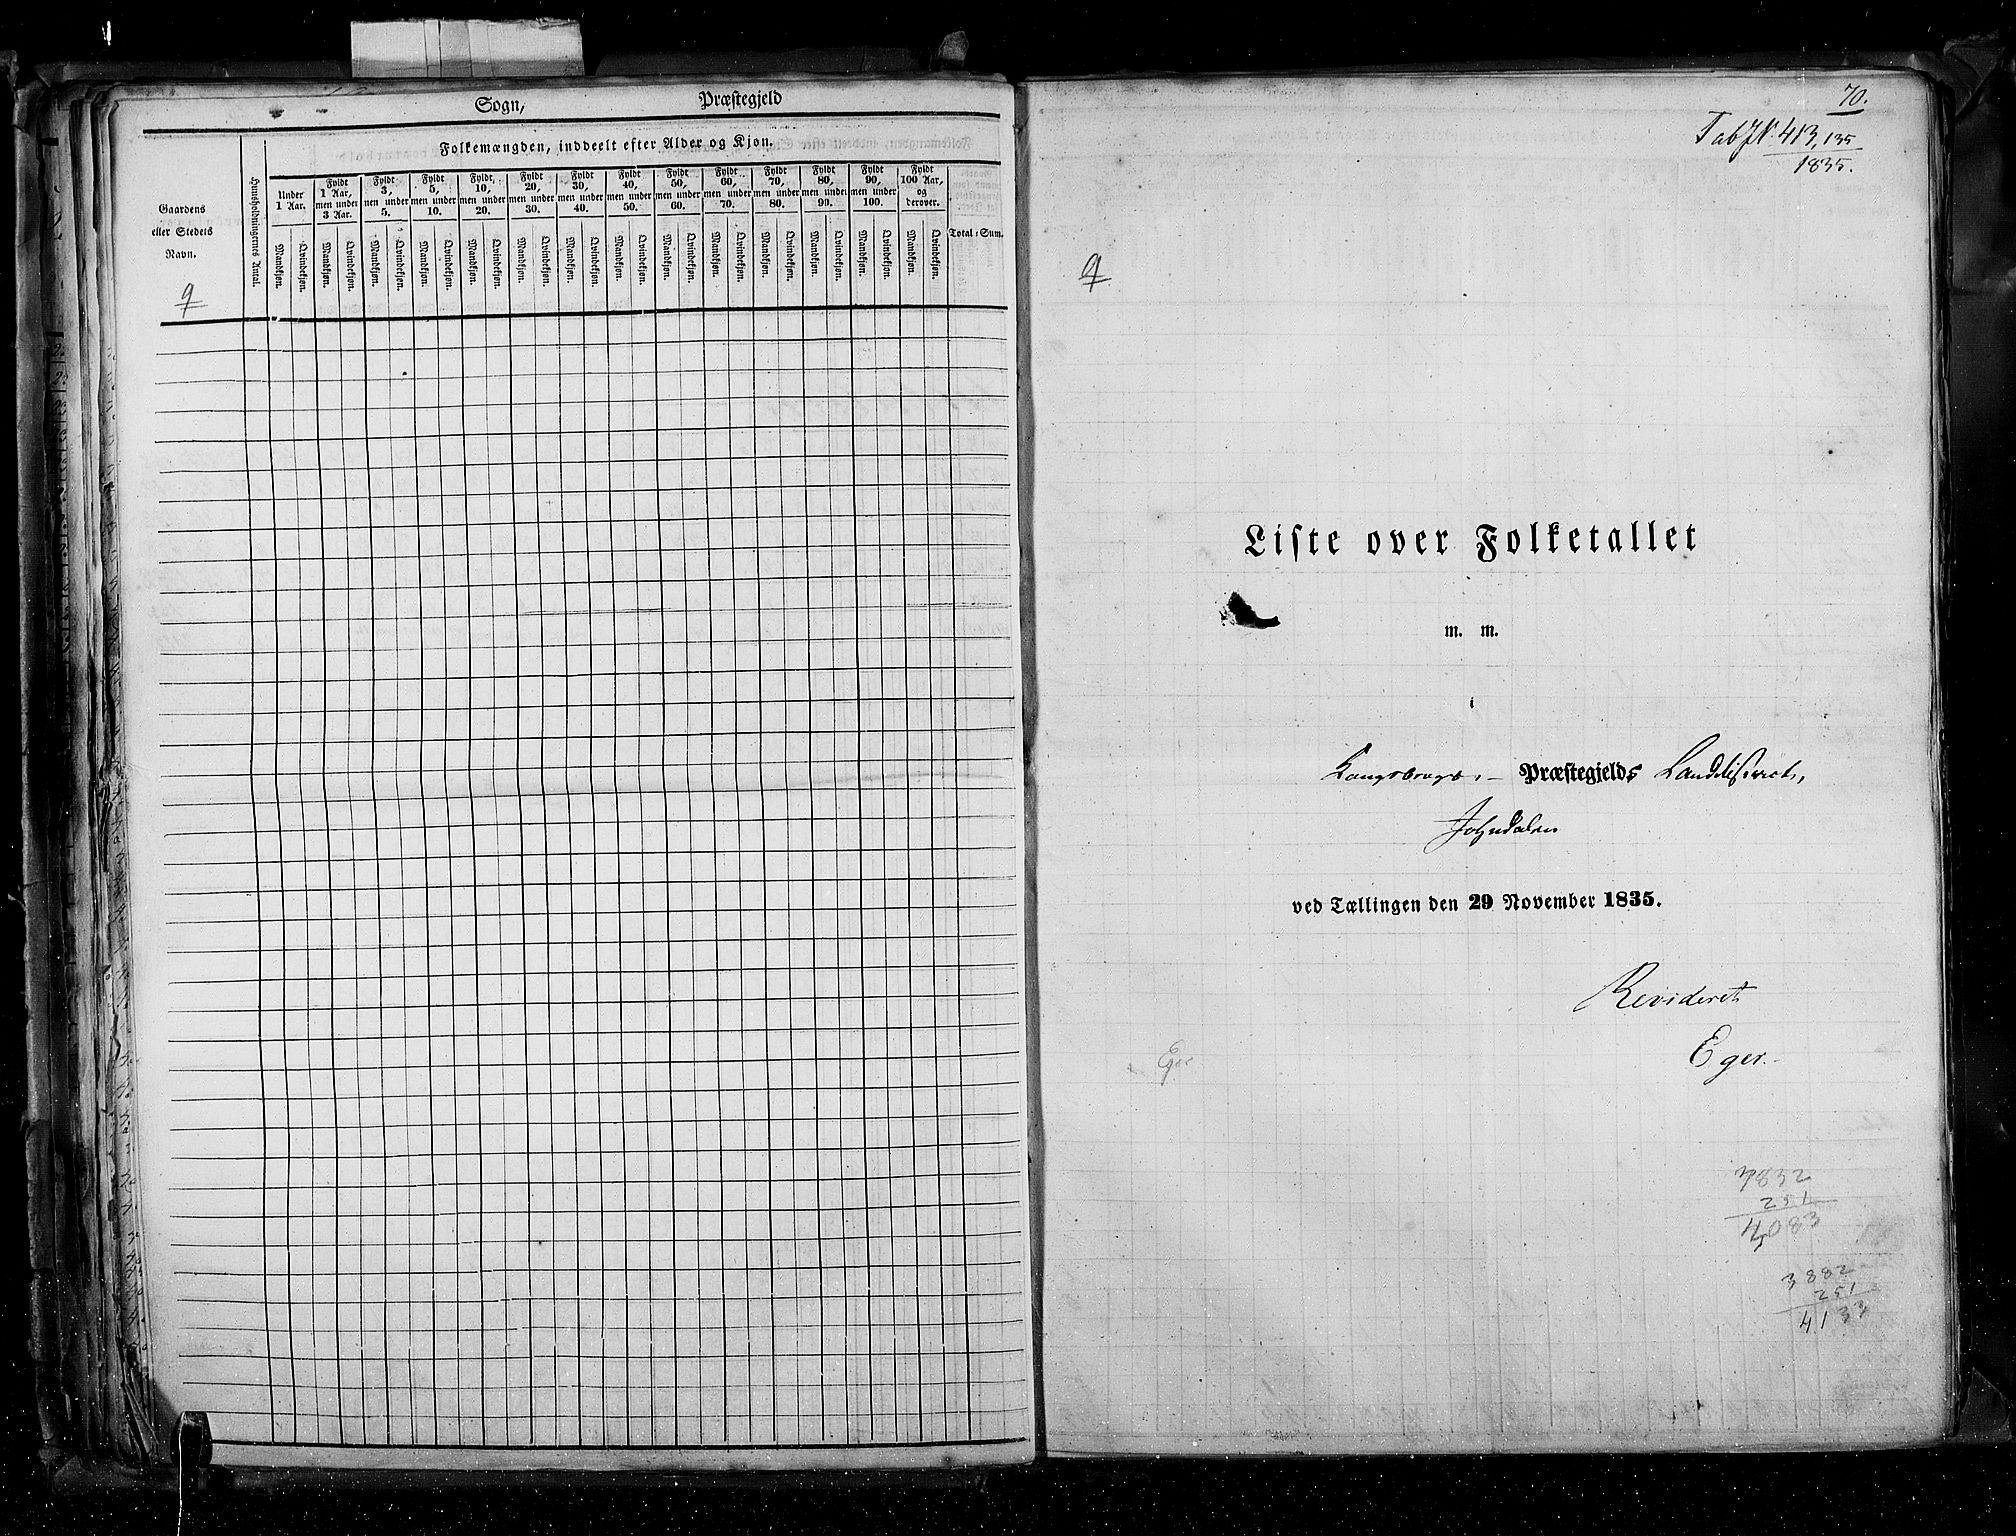 Sogn, Præstegjeld
Folkemængden, inddeelt efter Alder og Kjøn.
Gaardens
eller Stedets
Navn.
9
Huusholdningernes Antal.
Under
1 Aar.
Fyldt
1 Aar,
men under
3 Aar.
Fyldt
3,
men under
5.
Fyldt
5,
men under
10.
Fyldt
10,
men under
20.
Fyldt
20,
men under
30.
Fyldt
30,
men under
40.
Fyldt
40,
men under
50.
Fyldt
50,
men under
60.
Fyldt
60,
men under
70.
Fyldt
70,
men under
80.
Fyldt
80,
men under
90.
Fyldt
90,
men under
100.
Fyldt
100 Aar,
og
derover.
Total-Sum.
Mandkjøn. Qvindekjøn. Mandkjøn. Qvindekjøn. Mandkjøn. Qvindekjøn. Mandkjøn. Qvindekjøn. Mandkjøn. Qvindekjøn. Mandkjøn. Qvindekjøn. Mandkjøn. Qvindekjøn. Mandkjøn. Qvindekjøn. Mandkjøn. Qvindekjøn. Mandkjøn. Qvindekjøn. Mandkjøn. Qvindekjøn. Mandkjøn. Qvindekjøn. Mandkjøn. Qvindekjøn. Mandkjøn. Qvindekjøn.
70.
Tab J N 413,135
1835.
9
Liste over Folketallet
m. m.
i
Kongsbergs Præstegjelds Landdistrict,
Johndalen
ved Tællingen den 29 November 1835.
Revideret
Eger.
Eger
3832
251
4083
3882
251
4133